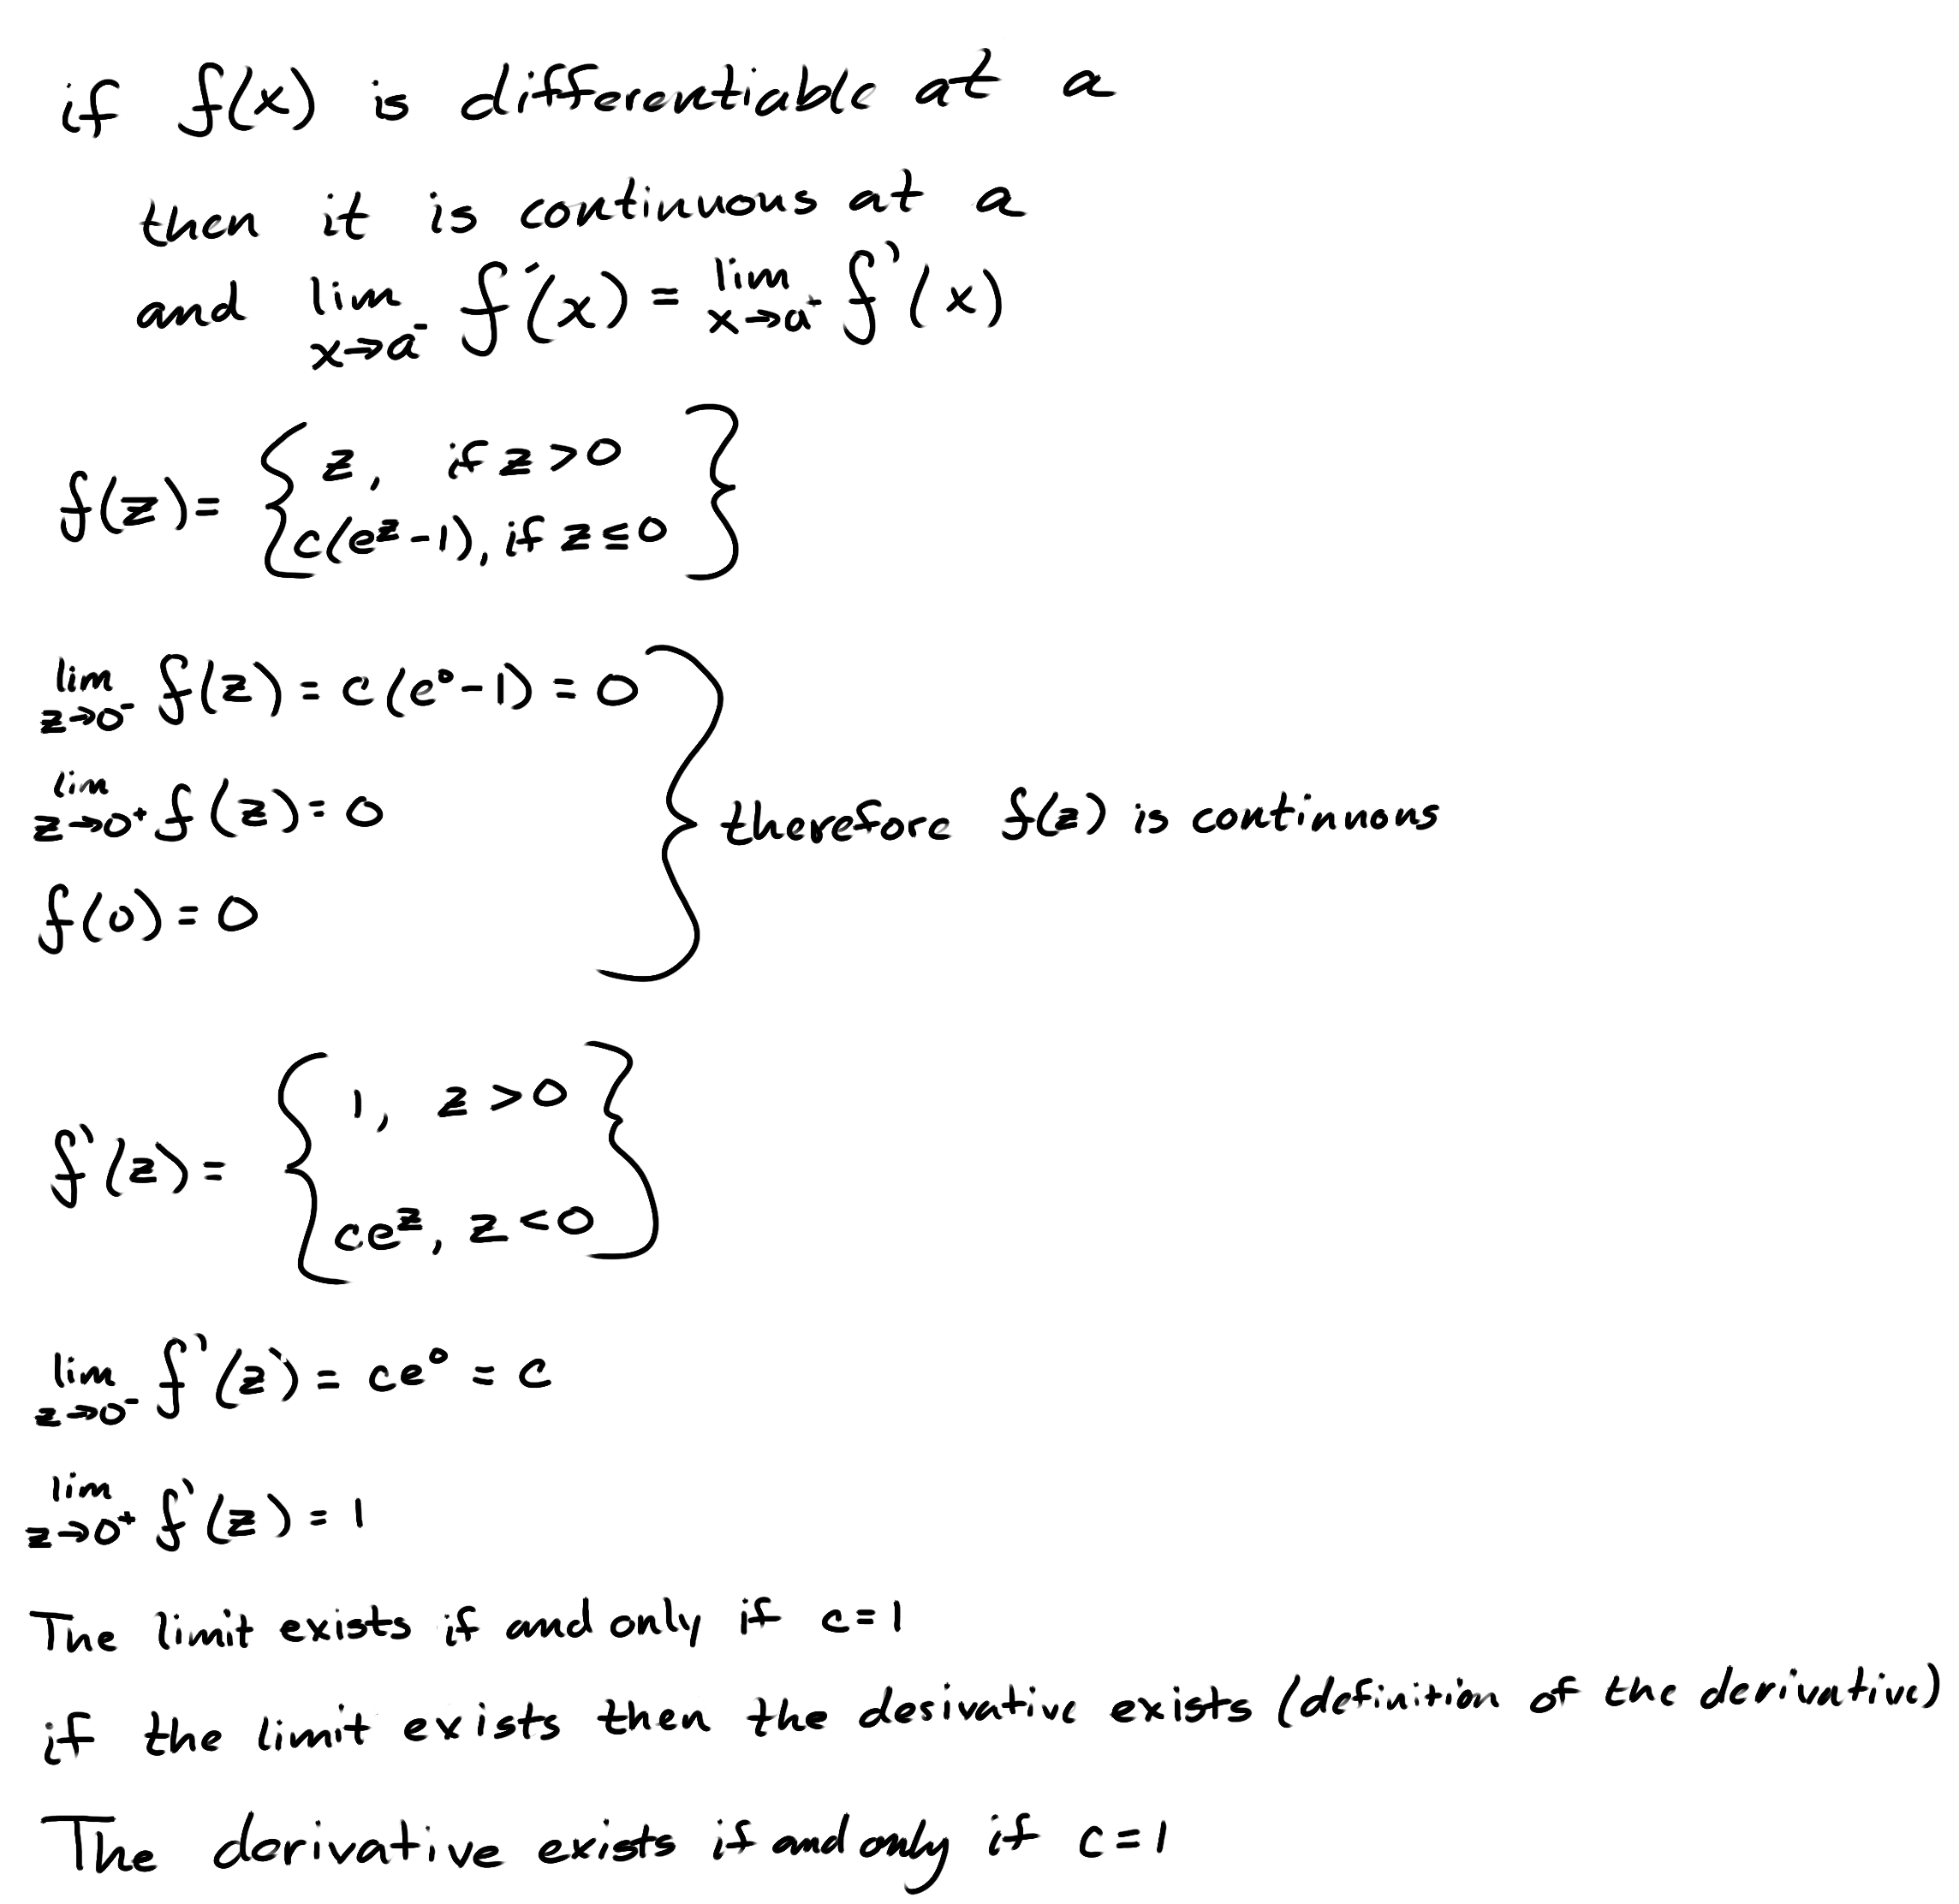 if f(x) is differentiable at a
then it is continuous at a
and lim x→a⁻ f'(x) = lim x→a⁺ f'(x)
f(z) = { z, if z > 0
c(e^z - 1), if z ≤ 0 }
lim z→0⁻ f(z) = c(e⁰ - 1) = 0
lim z→0⁺ f(z) = 0 } therefore f(z) is continuous
f(0) = 0
f'(z) = { 1, z > 0
ce^z, z < 0 }
lim z→0⁻ f'(z) = ce⁰ = c
lim z→0⁺ f'(z) = 1
The limit exists if and only if c = 1
if the limit exists then the derivative exists (definition of the derivative)
The derivative exists if and only if c = 1